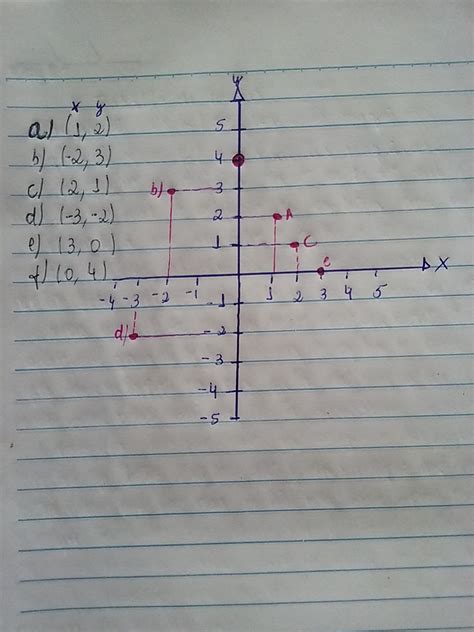 x y
a) (1, 2)
b) (-2, 3)
c) (2, 1)
d) (-3, -2)
e) (3, 0)
f) (0, 4)
y
5
4
b) 3
2 A
1 C
e
x
-4 -3 -2 -1 1 2 3 4 5
-1
d) -2
-3
-4
-5